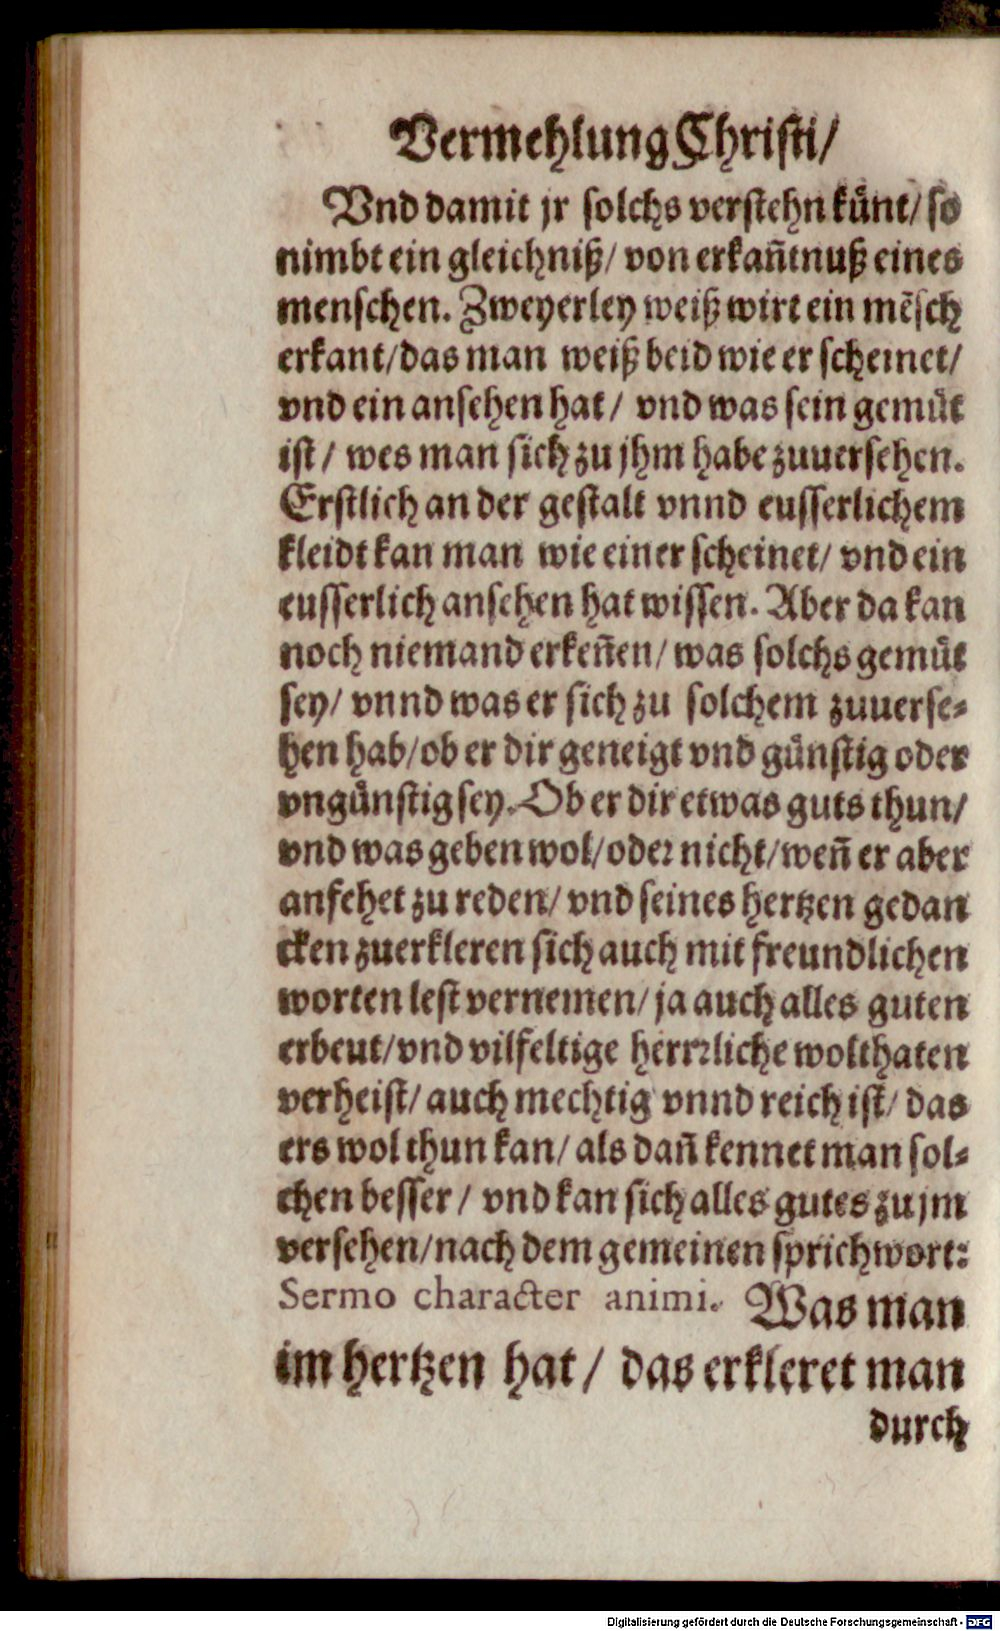 Vermehlung Christi/
Vnd damit jr solchs verstehn künt/ so
nimbt ein gleichniß/ von erkan̄tnuß eines
menschen. Zweyerley weiß wirt ein mēsch
erkant/ das man weiß beid wie er scheinet/
vnd ein ansehen hat/ vnd was sein gemüt
ist/ wes man sich zu jhm habe zuuersehen.
Erstlich an der gestalt vnnd eusserlichem
kleidt kan man wie einer scheinet/ vnd ein
eusserlich ansehen hat wissen. Aber da kan
noch niemand erken̄en/ was solchs gemüt
sey/ vnnd was er sich zu solchem zuuerse-
hen hab/ ob er dir geneigt vnd günstig oder
vngünstig sey. Ob er dir etwas guts thun/
vnd was geben wol/ oder nicht/ wen̄ er aber
anfehet zu reden/ vnd seines hertzen gedan
cken zuerkleren sich auch mit freundlichen
worten lest vernemen/ ja auch alles guten
erbeut/ vnd vilfeltige herrliche wolthaten
verheist/ auch mechtig vnnd reich ist/ das
ers wol thun kan/ als dan̄ kennet man sol-
chen besser/ vnd kan sich alles gutes zu jm
versehen/ nach dem gemeinen sprichwort:
Sermo character animi. Was man
im hertzen hat/ das erkleret man
durch
Digitalisierung gefördert durch die Deutsche Forschungsgemeinschaft - DFG